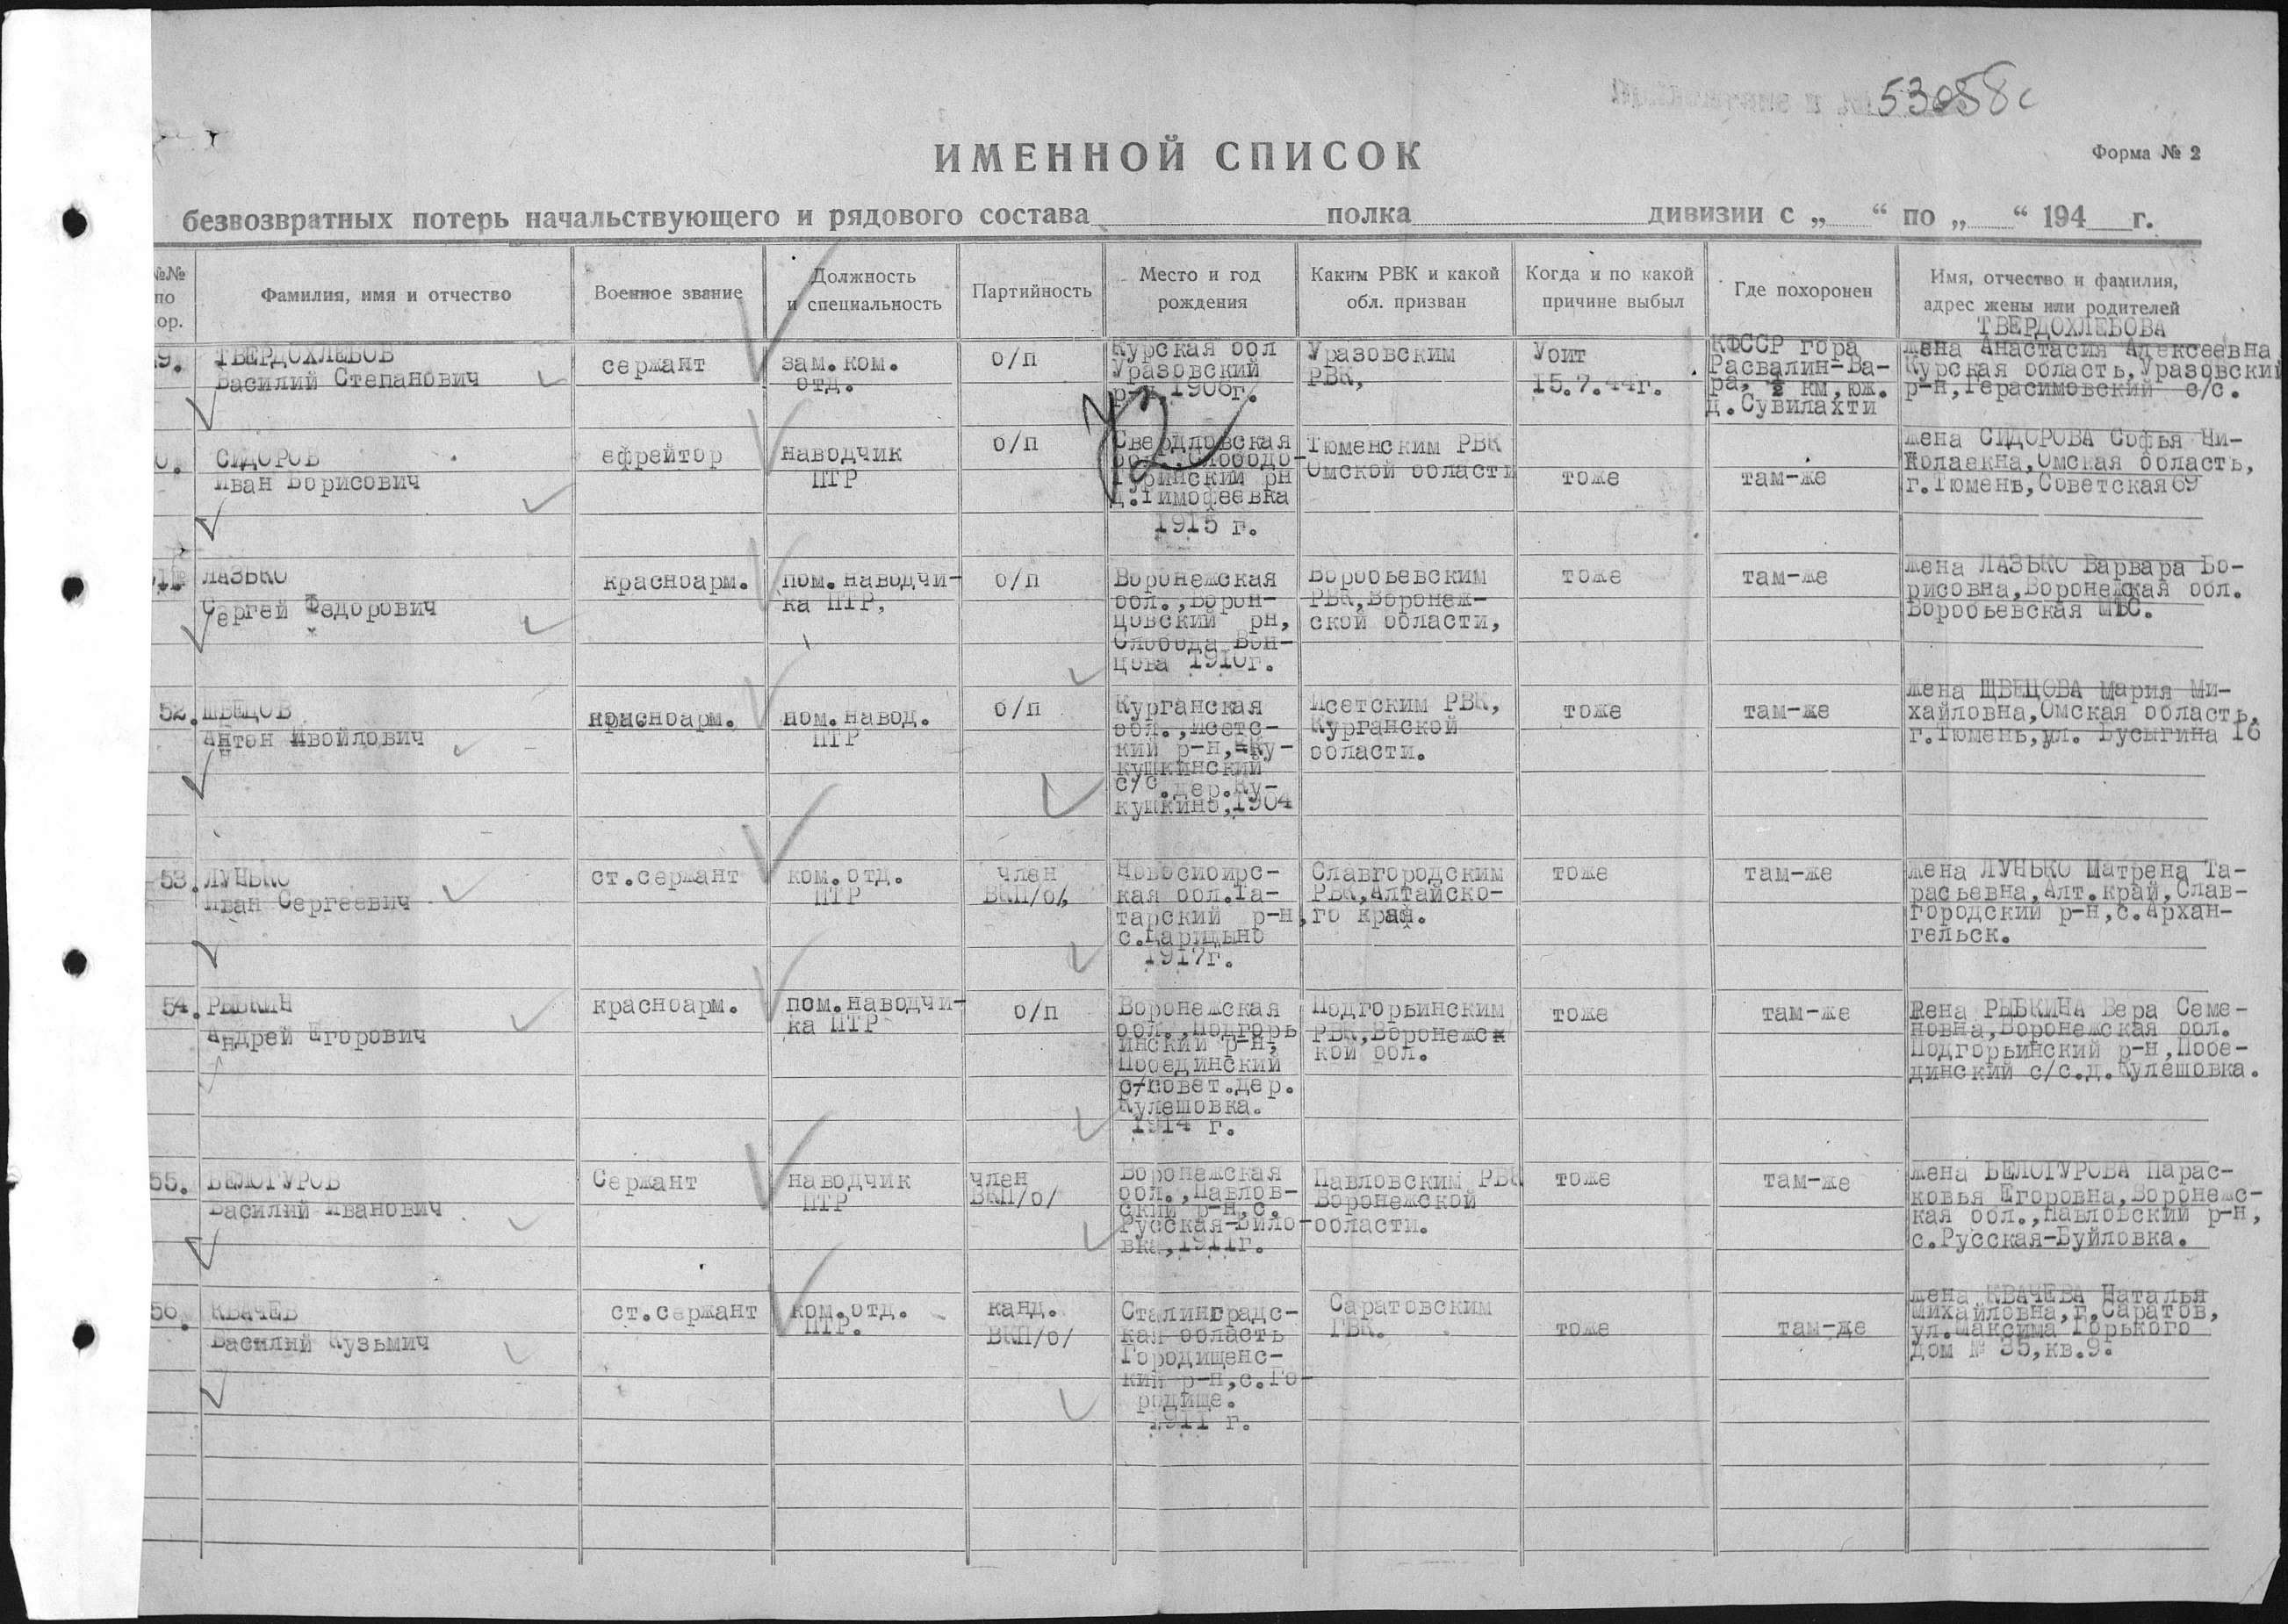 53058с
ИМЕННОЙ СПИСОК
Форма № 2
безвозвратных потерь начальствующего и рядового состава полка дивизии с „ “ по „ “ 194 г.
№№
по
ор.
Фамилия, имя и отчество
Военное звание
Должность
и специальность
Партийность
Место и год
рождения
Каким РВК и какой
обл. призван
Когда и по какой
причине выбыл
Где похоронен
Имя, отчество и фамилия,
адрес жены или родителей
9.
ТВЕРДОХЛЕБОВ
Василий Степанович
сержант
зам.ком.
отд.
б/п
Курская обл
Уразовский
р-н, 1906г.
Уразовским
РВК,
Убит
15.7.44г.
КФССР гора
Расвалин-Ва-
ра, ½ км,юж.
д.Сувилахти
ТВЕРДОХЛЕБОВА
жена Анастасия Алексеевна
Курская область,Уразовский
р-н,Герасимовский с/с.
0.
СИДОРОВ
Иван Борисович
ефрейтор
наводчик
ПТР
б/п
Свердловская
обл.,Слободо-
Туринский рн
д.Тимофеевка
1915 г.
Тюменским РВК
Омской области
тоже
там-же
жена СИДОРОВА Софья Ни-
колаекна,Омская область,
г.Тюмень,Советская69
ЛАЗЬКО
Сергей Федорович
красноарм.
пом.наводчи-
ка ПТР,
б/п
Воронежская
обл.,Ворон-
цовский рн,
Слобода Вон-
цова 1910г.
Воробьевским
РВК,Воронеж-
ской области,
тоже
там-же
жена ЛАЗЬКО Варвара Бо-
рисовна,Воронежская обл.
Воробьевская МТС.
52.
ШВЕЦОВ
Антон Ивойлович
красноарм.
пом.навод.
ПТР
б/п
Курганская
обл.,Исетс-
кий р-н, Ку-
кушкинский
с/с.дер.Ку-
кушкино,1904
Исетским РВК,
Курганской
области.
тоже
там-же
жена ШВЕЦОВА Мария Ми-
хайловна,Омская область,
г.Тюмень,ул. Бусыгина 16
53.
ЛУНЬКО
Иван Сергеевич
ст.сержант
ком.отд.
ПТР
член
ВКП/б/,
Новосибирс-
кая обл.Та-
тарский р-н,
с.Царицыно
1917г.
Славгородским
РВК,Алтайско-
го края.
тоже
там-же
жена ЛУНЬКО Матрена Та-
расьевна,Алт.край,Слав-
городский р-н,с.Архан-
гельск.
54.
РЫБКИН
Андрей Егорович
красноарм.
пом.наводчи-
ка ПТР
б/п
Воронежская
обл.,Подгорь
инский р-н,
Побединский
с/совет.дер.
Кулешовка.
1914 г.
Подгорьинским
РВК,Воронежск
кой обл.
тоже
там-же
Жена РЫБКИНА Вера Семе-
новна,Воронежская обл.
Подгорьинский р-н,Побе-
динский с/с.д.Кулешовка.
55.
БЕЛОГУРОВ
Василий Иванович
Сержант
наводчик
ПТР
член
ВКП/б/
Воронежская
обл.,Павлов-
ский р-н,с.
Русская-Било-
вка,1911г.
Павловским РВК
Воронежской
области.
тоже
там-же
жена БЕЛОГУРОВА Парас-
ковья Егоровна,Воронежс-
кая обл.,Павловский р-н,
с.Русская-Буйловка.
56.
КВАЧЕВ
Василий Кузьмич
ст.сержант
ком.отд.
ПТР.
канд.
ВКП/б/
Сталинградс-
кая область
Городищенс-
кий р-н,с.Го-
родище.
1911 г.
Саратовским
ГВК.
тоже
там-же
жена КВАЧЕВА Наталья
Михайловна,г.Саратов,
ул.Максима Горького
дом № 35,кв.9.